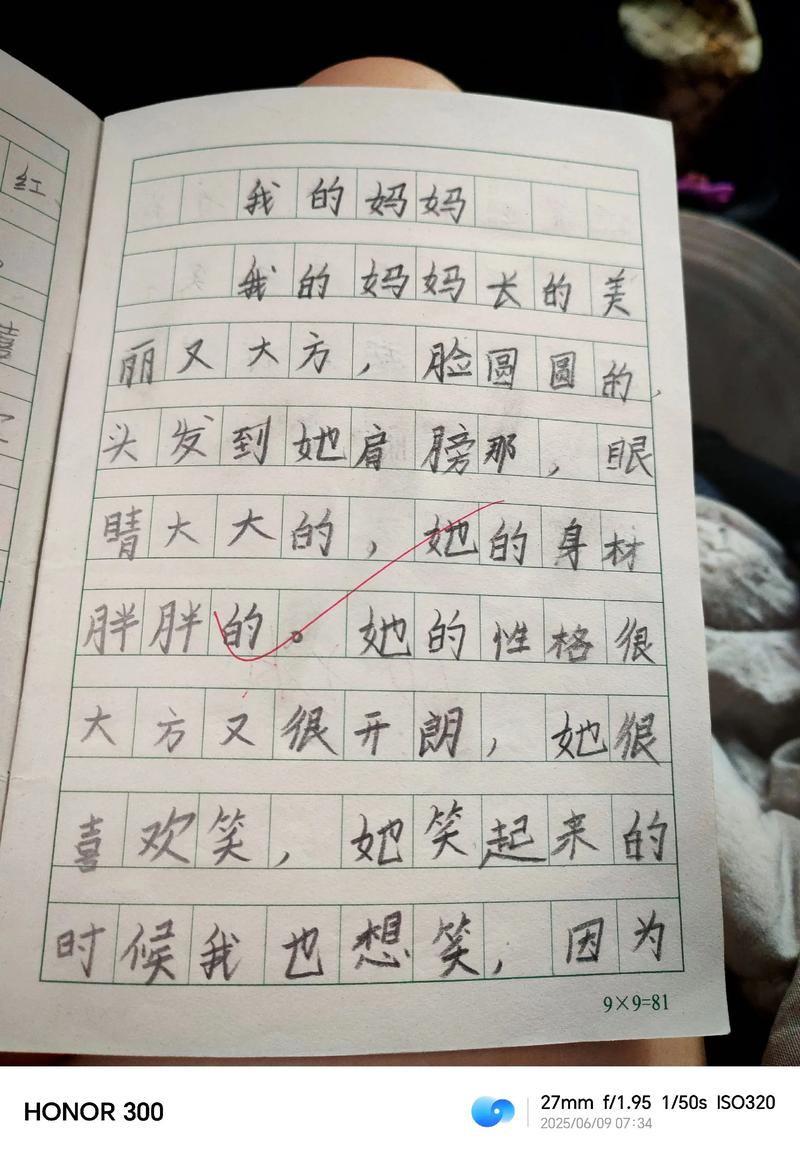 红
我的妈妈
我的妈妈长的美
丽又大方，脸圆圆的，
头发到她肩膀那，眼
睛大大的，她的身材
胖胖的。她的性格很
大方又很开朗，她很
喜欢笑，她笑起来的
时候我也想笑，因为
9×9=81
HONOR 300
27mm f/1.95 1/50s ISO320
2025/06/09 07:34